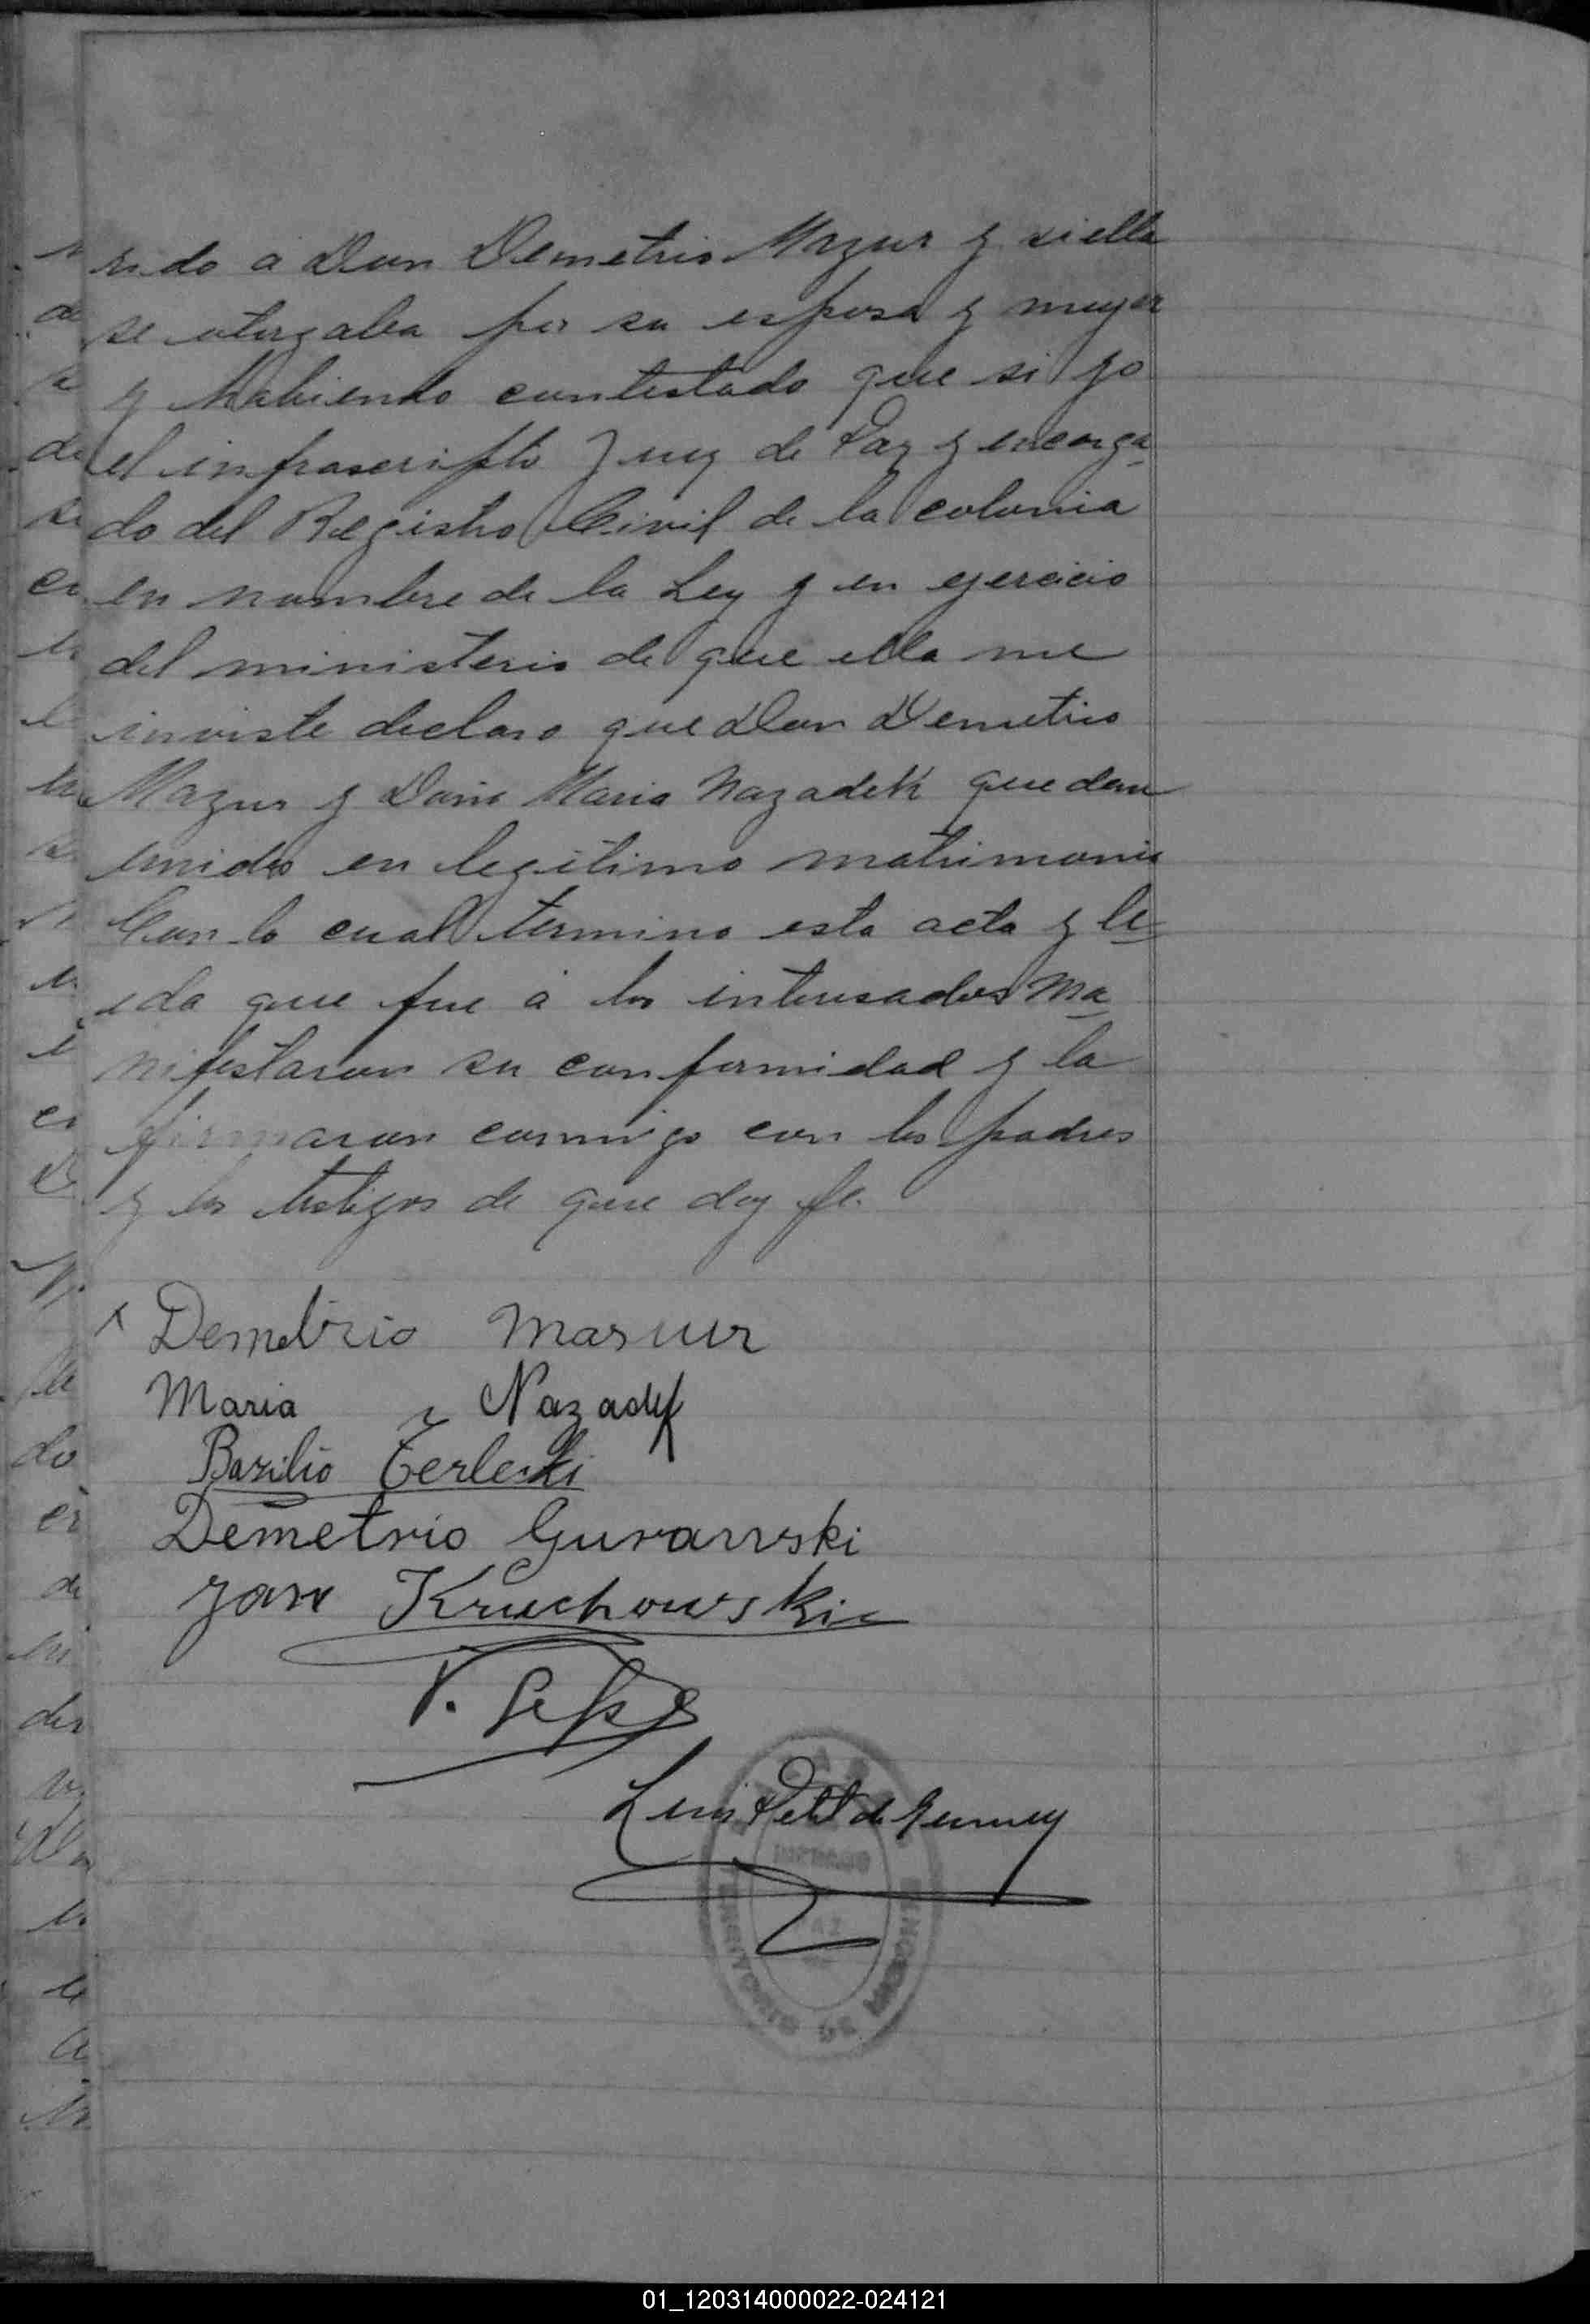 rido á Don Demetrio Mazur y si ella
se otorgaba por su esposa y mujer
y habiendo contestado que si yo
el infrascripto Juez de Paz y encarga
do del Registro Civil de la colonia
en nombre de la Ley y en ejercicio
del ministerio de que ella me
inviste declaro que Don Demetrio
Mazur y Doña Maria Nazadek quedan
unidos en legitimo matrimonio
Con lo cual termino esta acta y le
ida que fue á los interesados ma
nifestaron su conformidad y la
firmaron conmigo con los padres
y los testigos de que doy fe.
x Demetrio Masur
Maria Nazadek
Bazilio Terlecki
Demetrio Guranrski
Jan Kruchowski
Luis Petit de
01_120314000022-024121